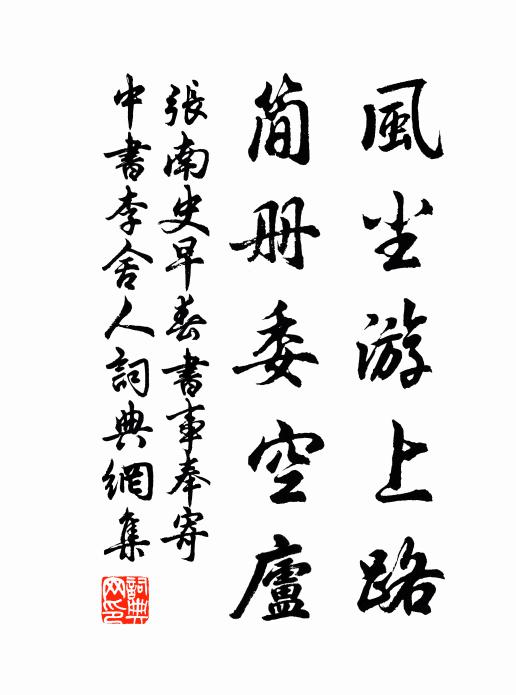 風尘游上路
简册委空廬
張南史早春書事奉寄
中書李舍人詞典網集
詞典网印